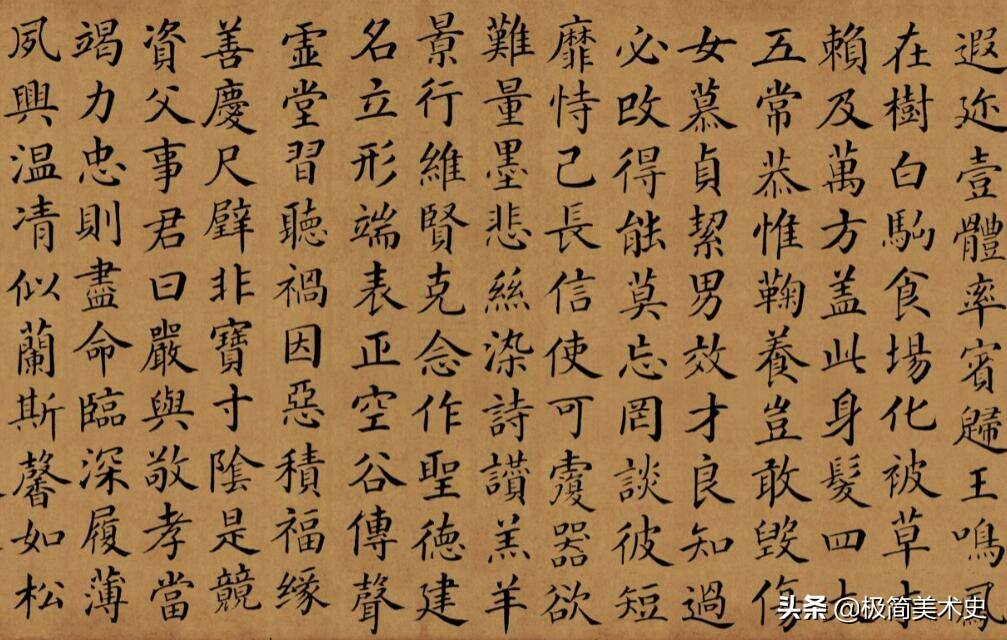 遐迩壹體率賓歸王鳴鳳
在樹白駒食場化被草木
賴及萬方盖此身髮四大
五常恭惟鞠養豈敢毀傷
女慕貞絜男效才良知過
必改得能莫忘罔談彼短
靡恃己長信使可覆器欲
難量墨悲絲染詩讚羔羊
景行維賢克念作聖德建
名立形端表正空谷傳聲
虛堂習聽禍因惡積福緣
善慶尺璧非寶寸陰是競
資父事君曰嚴與敬孝當
竭力忠則盡命臨深履薄
夙興温凊似蘭斯馨如松
头条 @极简美术史